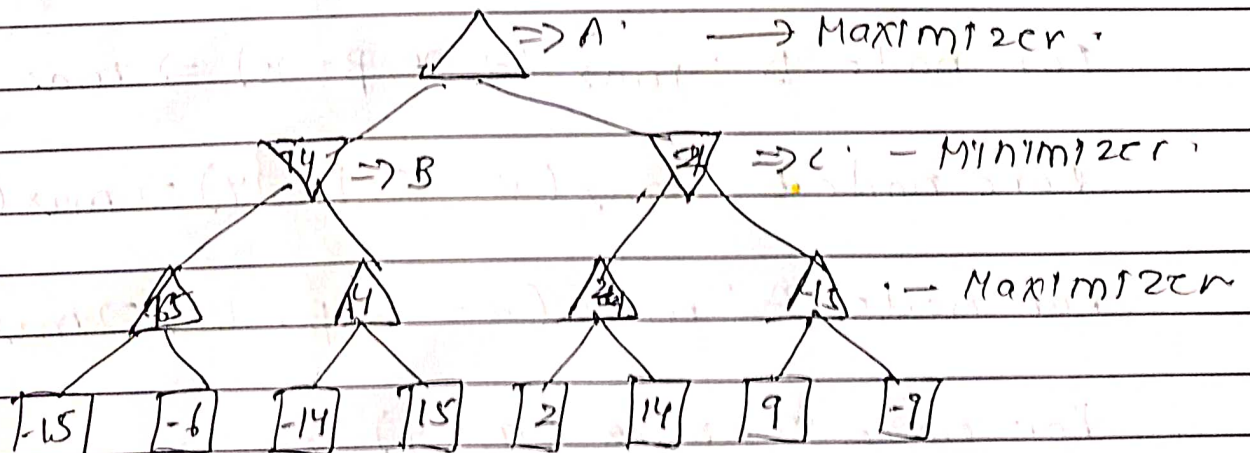 => A. → Maximizer.
14 => B => C. - Minimizer.
14 -15 .- Maximizer
-15 -6 -14 15 2 14 9 -9